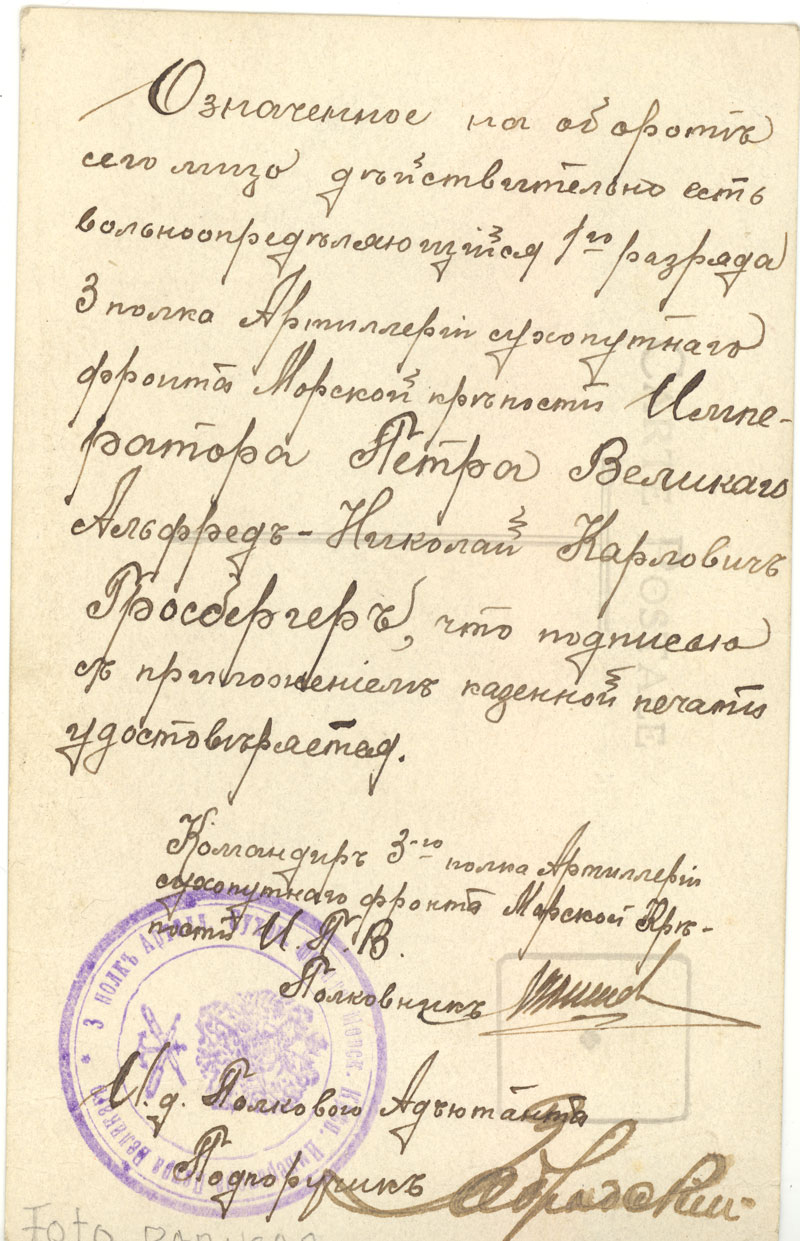 Означенное на оборотѣ
сего лицо дѣйствительно есть
вольноопредѣляющійся 1го разряда
3 полка Артиллеріи сухопутнаго
фронта Морской крѣпости Импе-
ратора Петра Великаго
Альфредъ-Николай Карловичъ
Гросбергеръ, что подписью
съ приложеніемъ казенной печати
удостовѣряется.
Командиръ 3-го полка Артиллеріи
сухопутнаго фронта Морской Крѣ-
пости И. П. В.
Полковникъ
И. д. Полкового Адъютанта
Подпоручикъ
3 ПОЛКЪ
ПЕТРА ВЕЛИКАГО
CARTE POSTALE
Foto